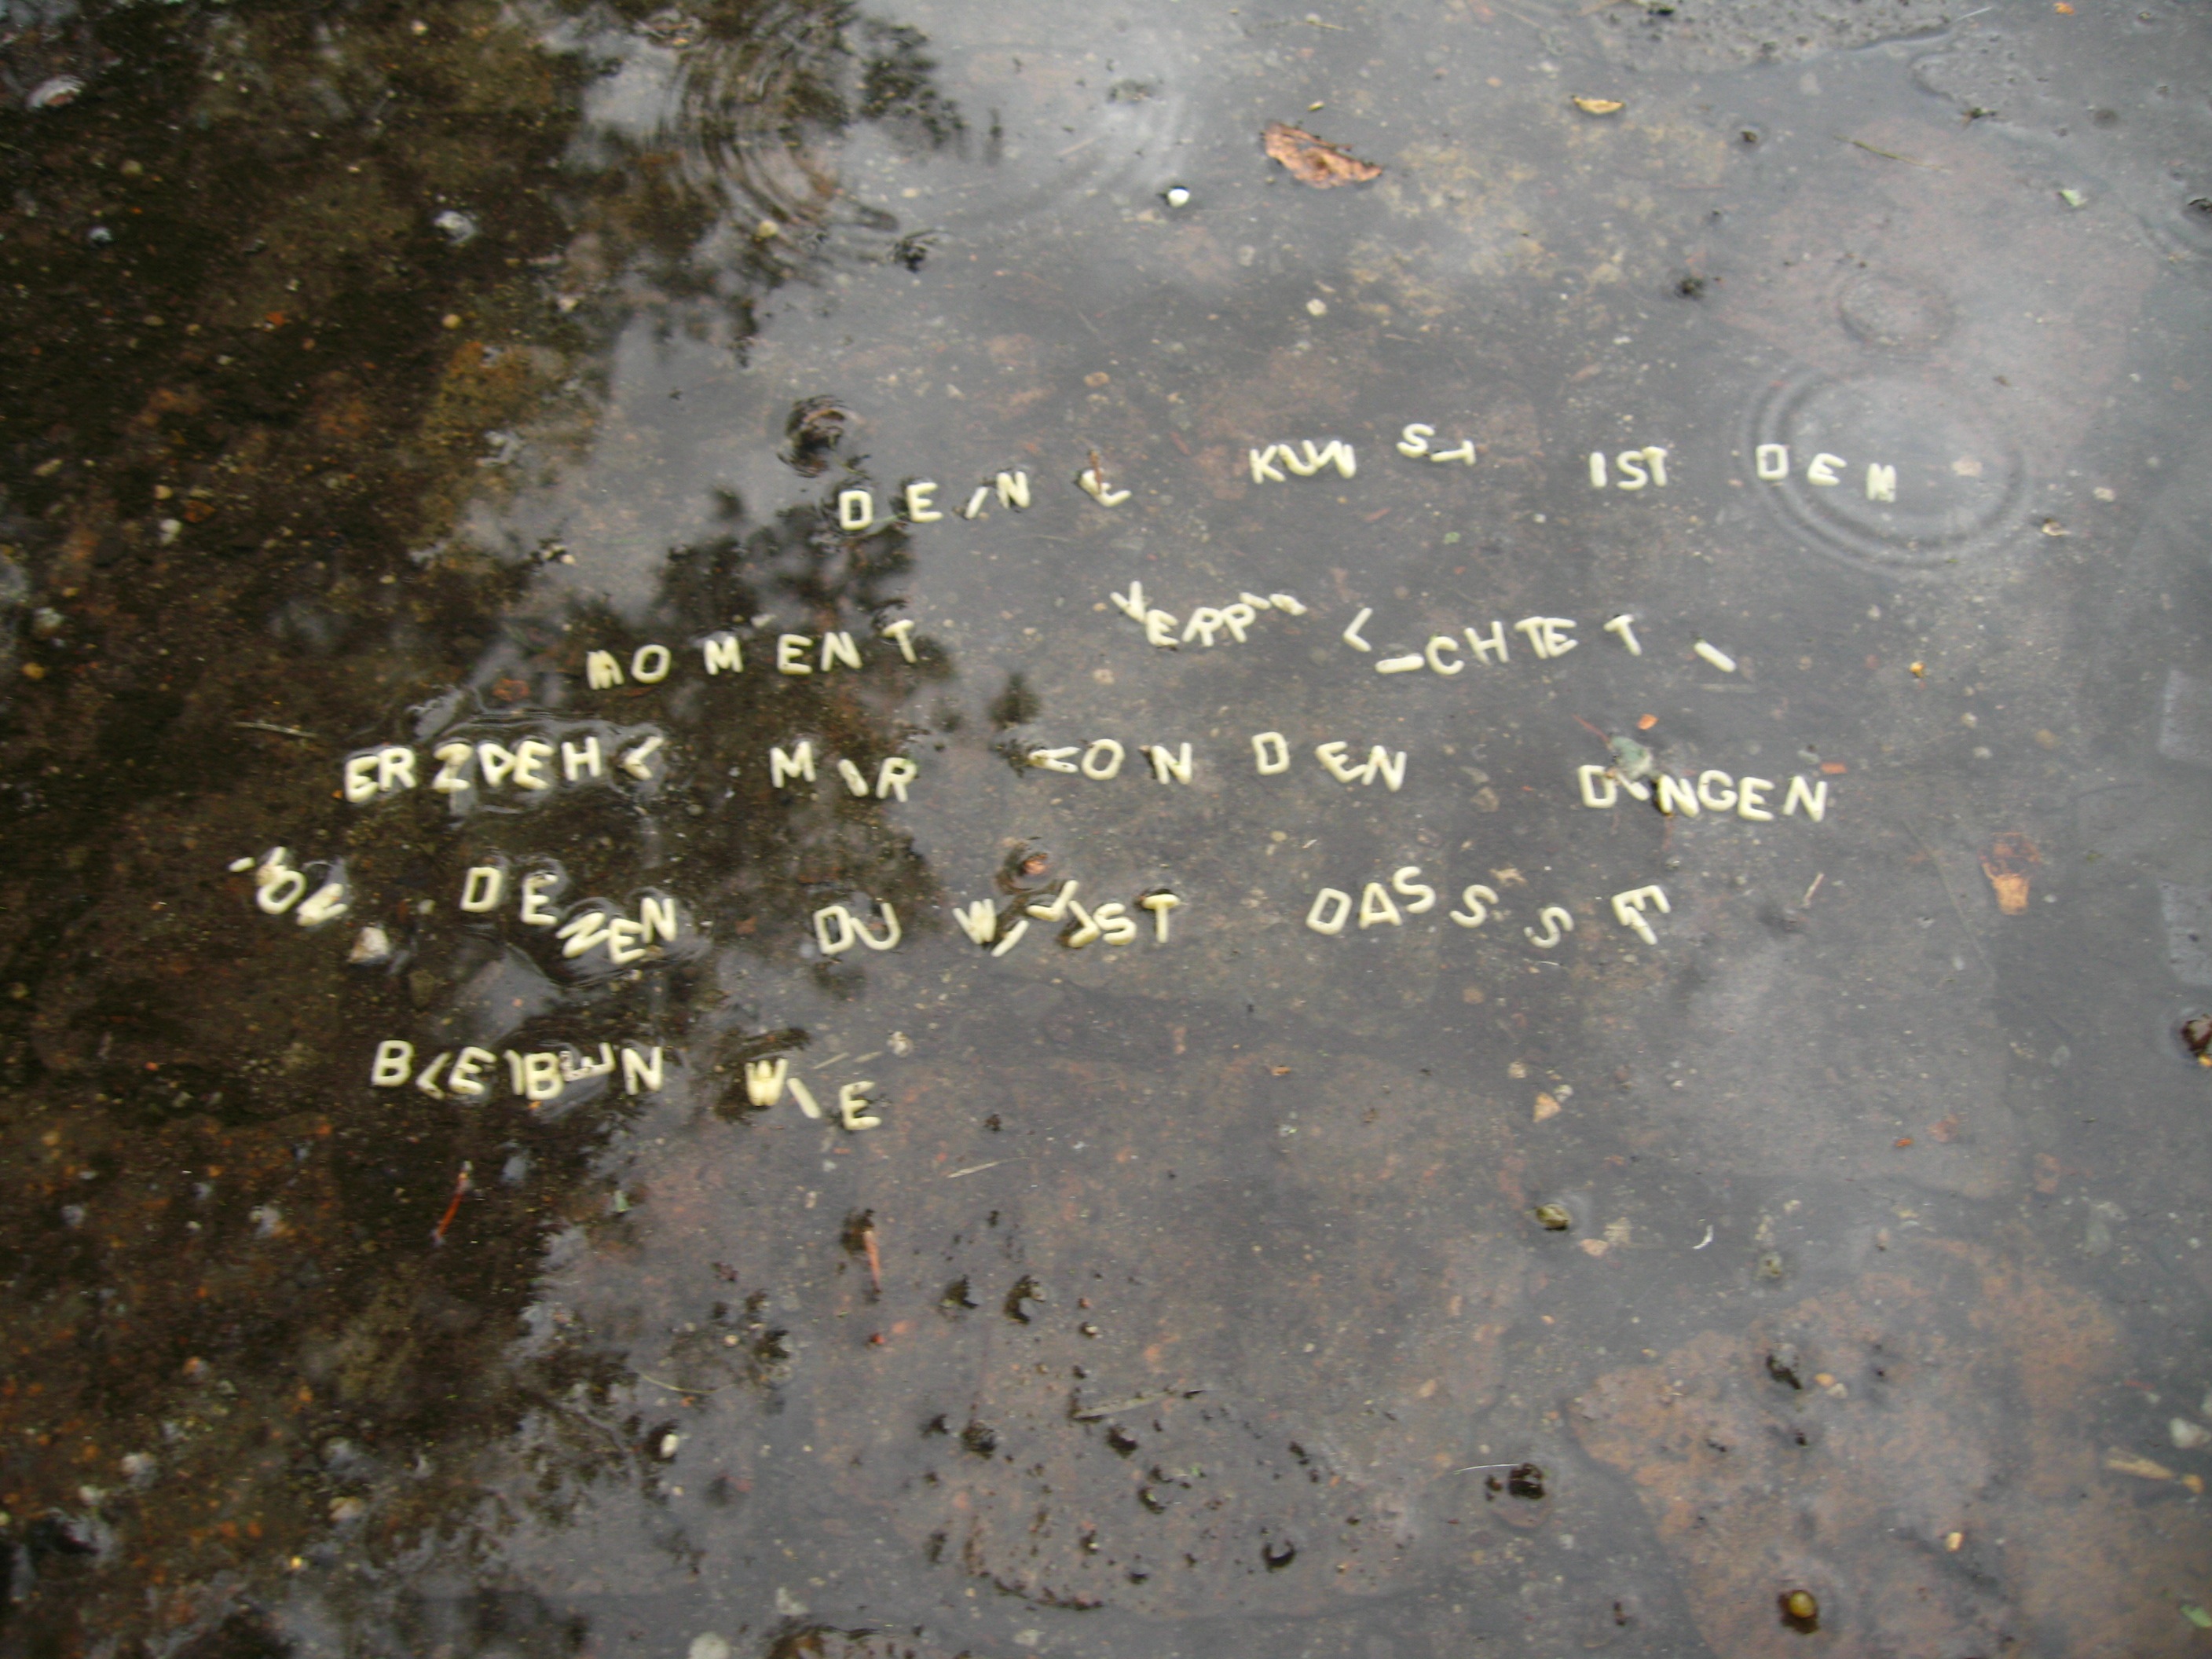 DEINE KUNST IST DEM
MOMENT VERPFLICHTET
ERZAEHL MIR VON DEN DINGEN
VON DENEN DU WILLST DASS SIE
BLEIBEN WIE